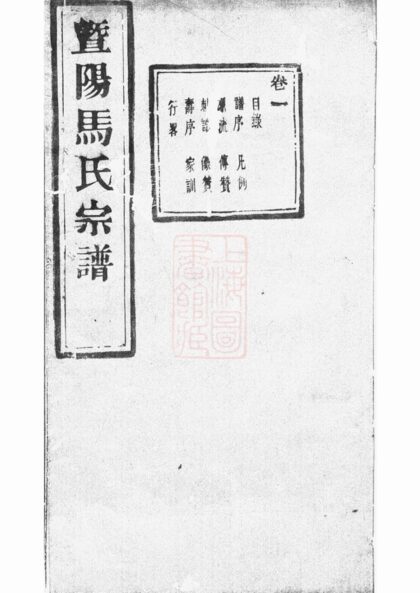 暨陽馬氏宗譜
卷一
目錄
譜序 凡例
源流 傳贊
制誥 像贊
壽序 家訓
行畧
上海圖書館藏